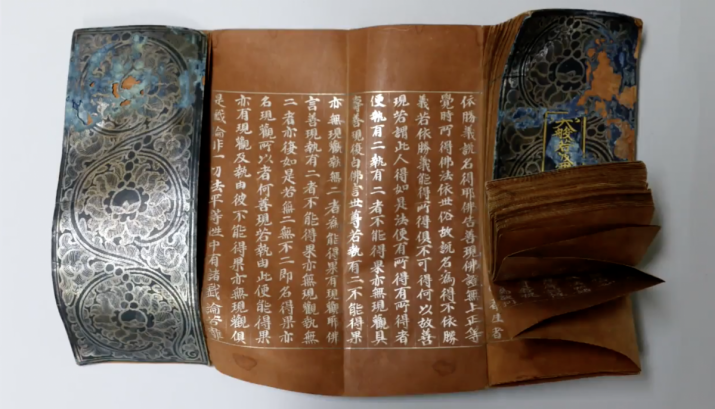 依勝義說名得耶佛告善現佛證無上正等
覺時所得佛法依世俗故說名為得不依勝
義若依勝義能得所得俱不可得何以故善
現若謂此人得如是法便有所得有所得者
便執有二執有二者不能得果亦無現觀具
壽善現復白佛言世尊若執有二不能得果
亦無現觀執無二者為能得果有現觀耶佛
言善現執有二者不能得果亦無現觀執無
二者亦復如是若無二無不二即名得果亦
名現觀所以者何善現若執由此便能得果
亦有現觀及執由彼不能得果亦無現觀俱
是戲論非一切法平等性中有諸戲論若離
般若